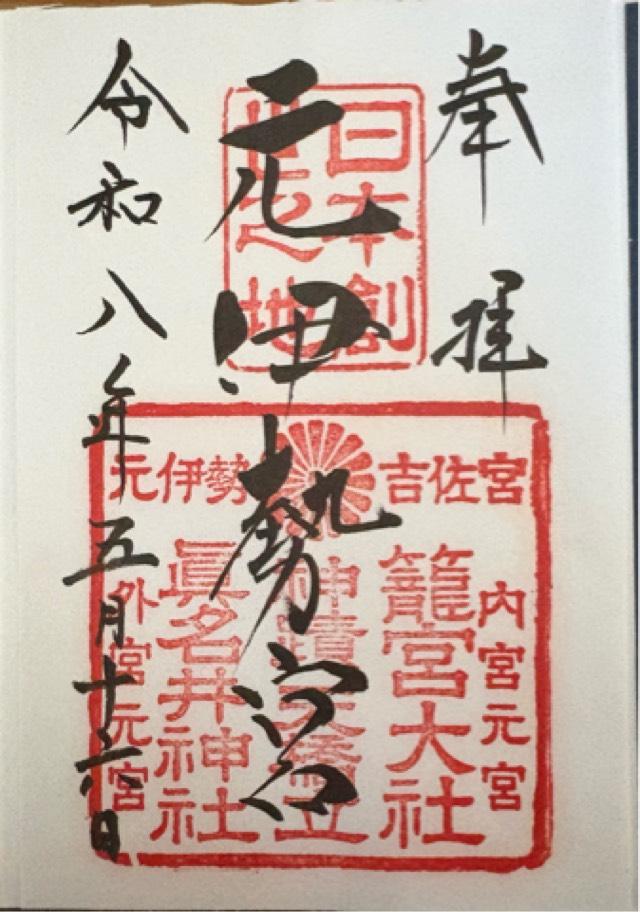 奉拝
日本創
世之地
元伊勢宮
吉佐宮
元伊勢
内宮元宮
籠宮大社
神蹟天橋立
眞名井神社
外宮元宮
令和八年五月十六日